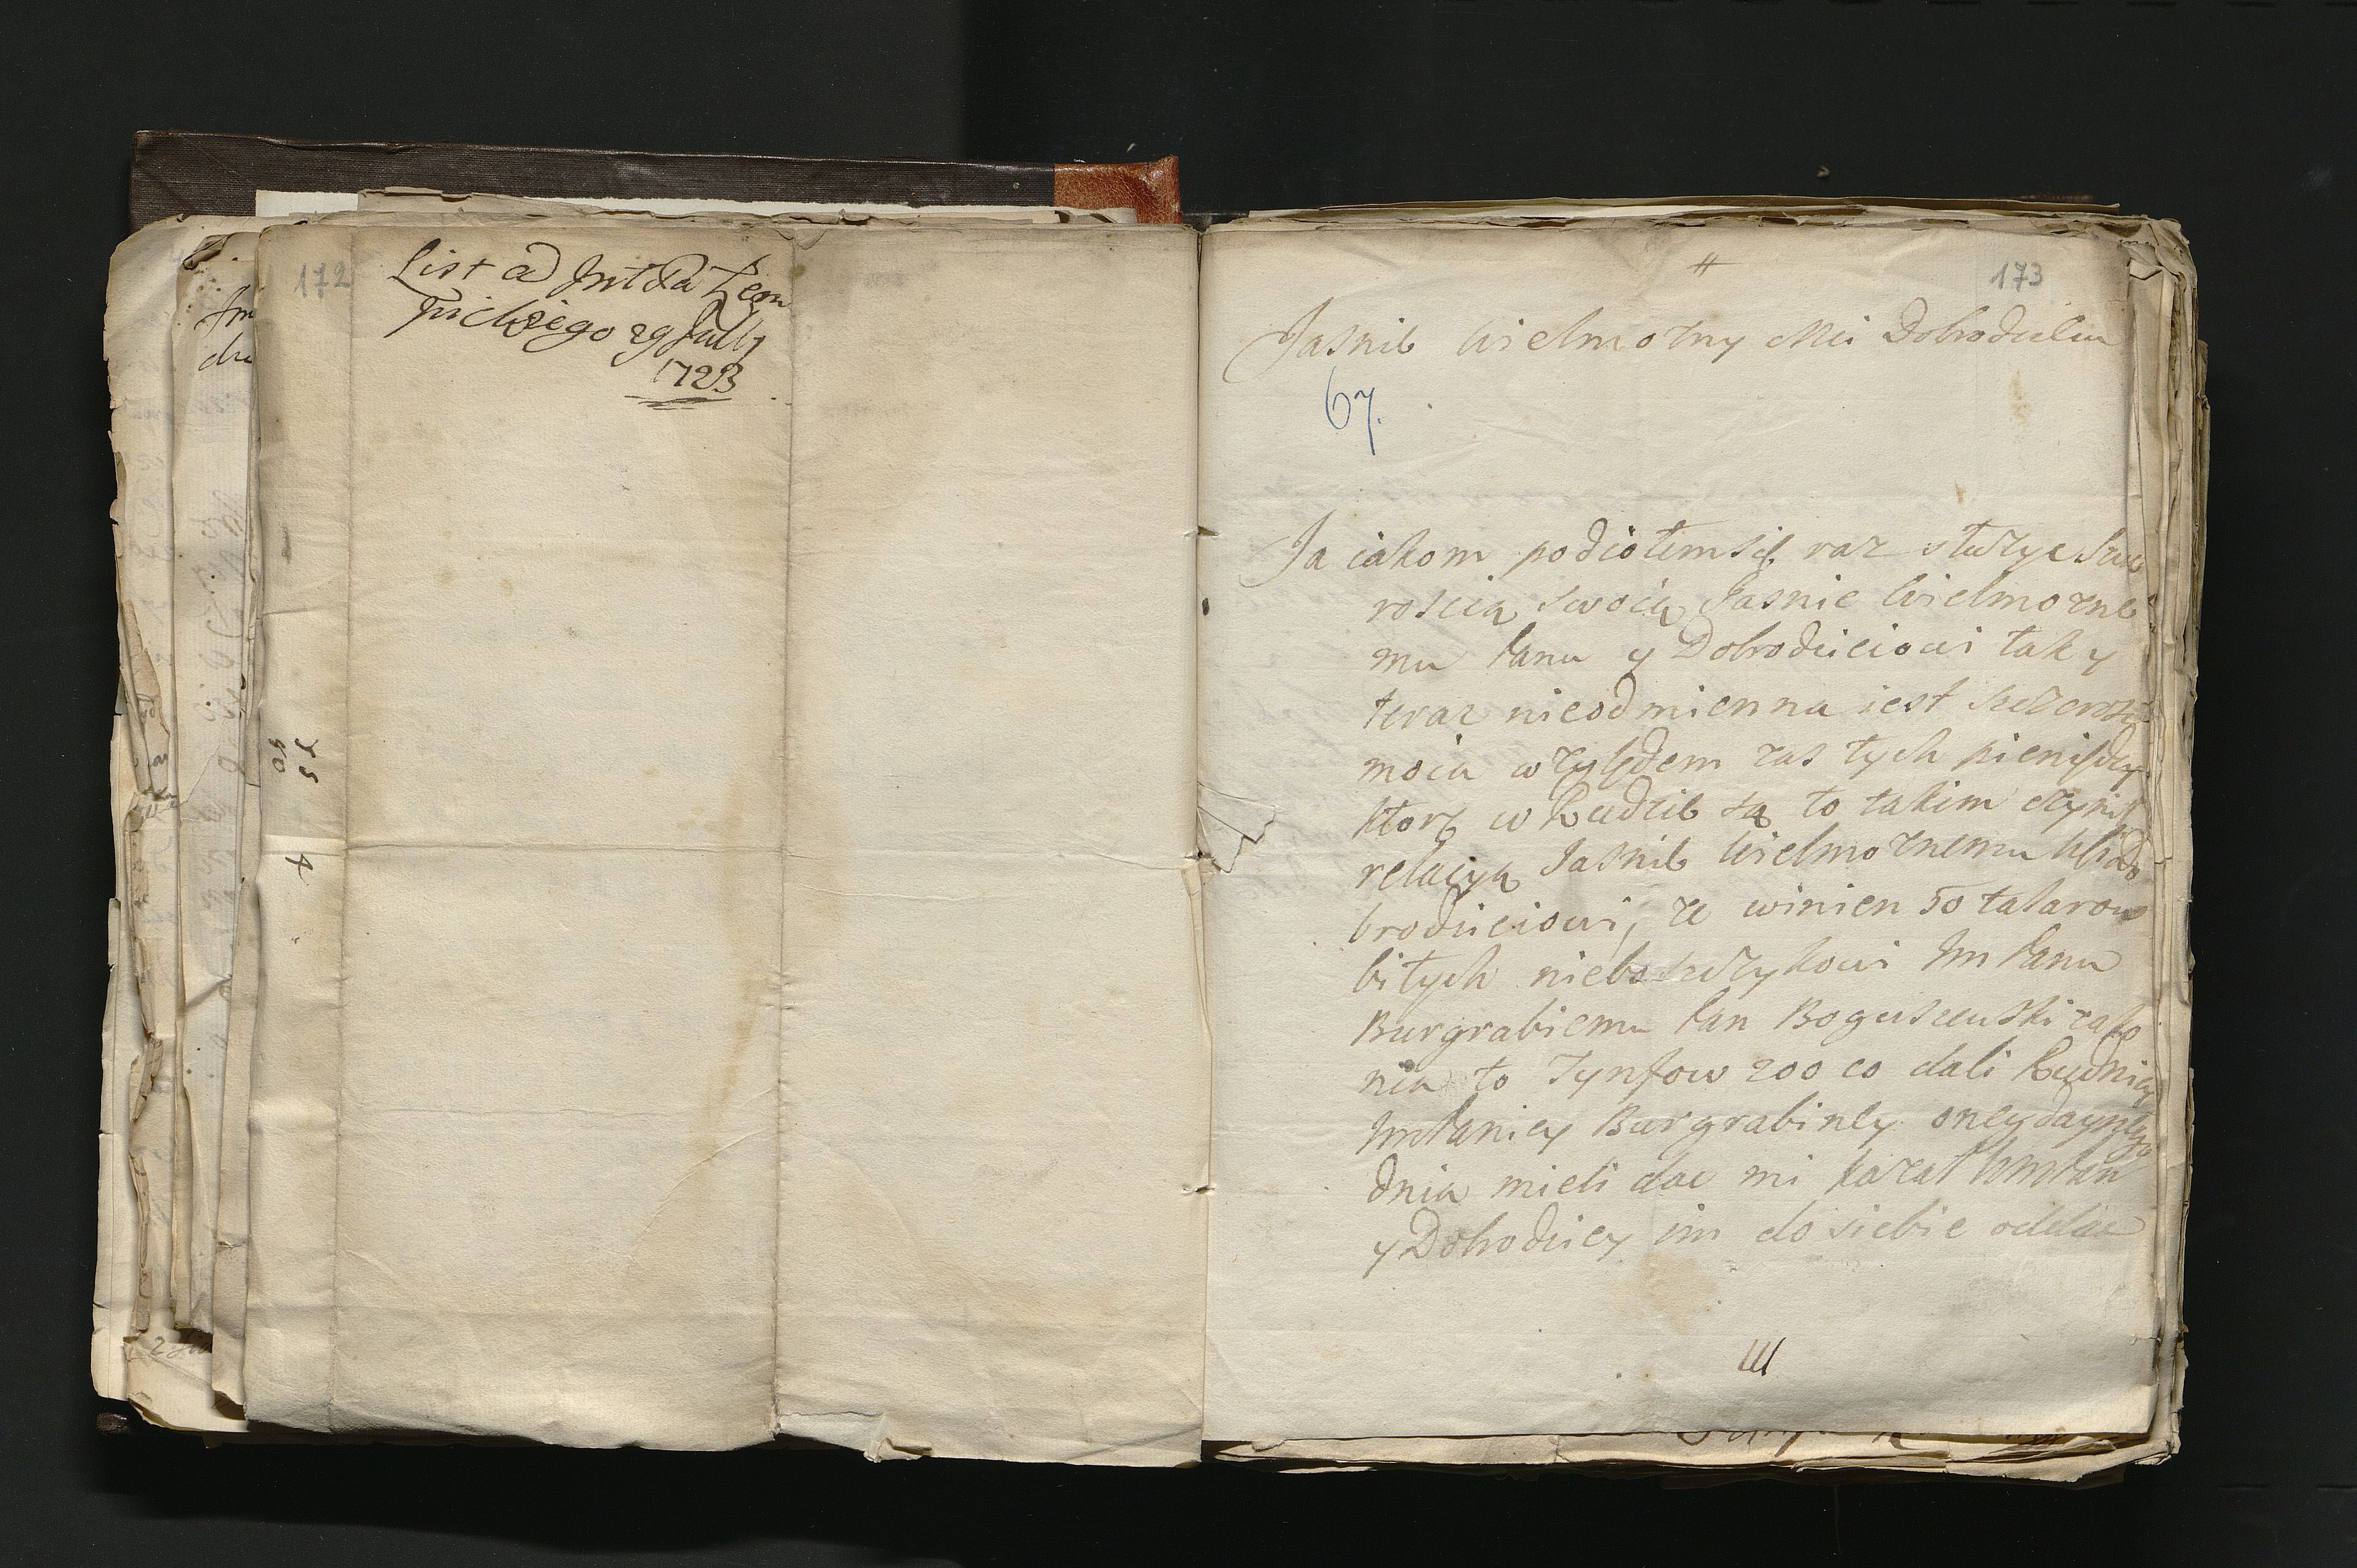 172
List od Jmt Pa Zem
pickiego 29 July
1723
173
Jasnie Wielmozny Mci Dobrodzieiu
67.
Ja iakom podiołemsię raz słuzyc szcze
roscią swoią Jasnie Wielmozne
mu Panu y Dobrodzieiowi tak y
teraz nieodmienna iest szczerosc
moia względem zas tych pieniędzy
ktore w Rudzie są to takim czynię
relacyą Jasnie Wielmoznemu Do
brodzieiowi, ze winien 50 talarow
bitych nieboszczykowi Jm Panu
Burgrabiemu Pan Boguszewski
nia to Tynfow 200 co dali Rudnicy
Jm Paniey Burgrabiney
dnia mieli dac mi kazał
y Dobrodziey im do siebie oddac